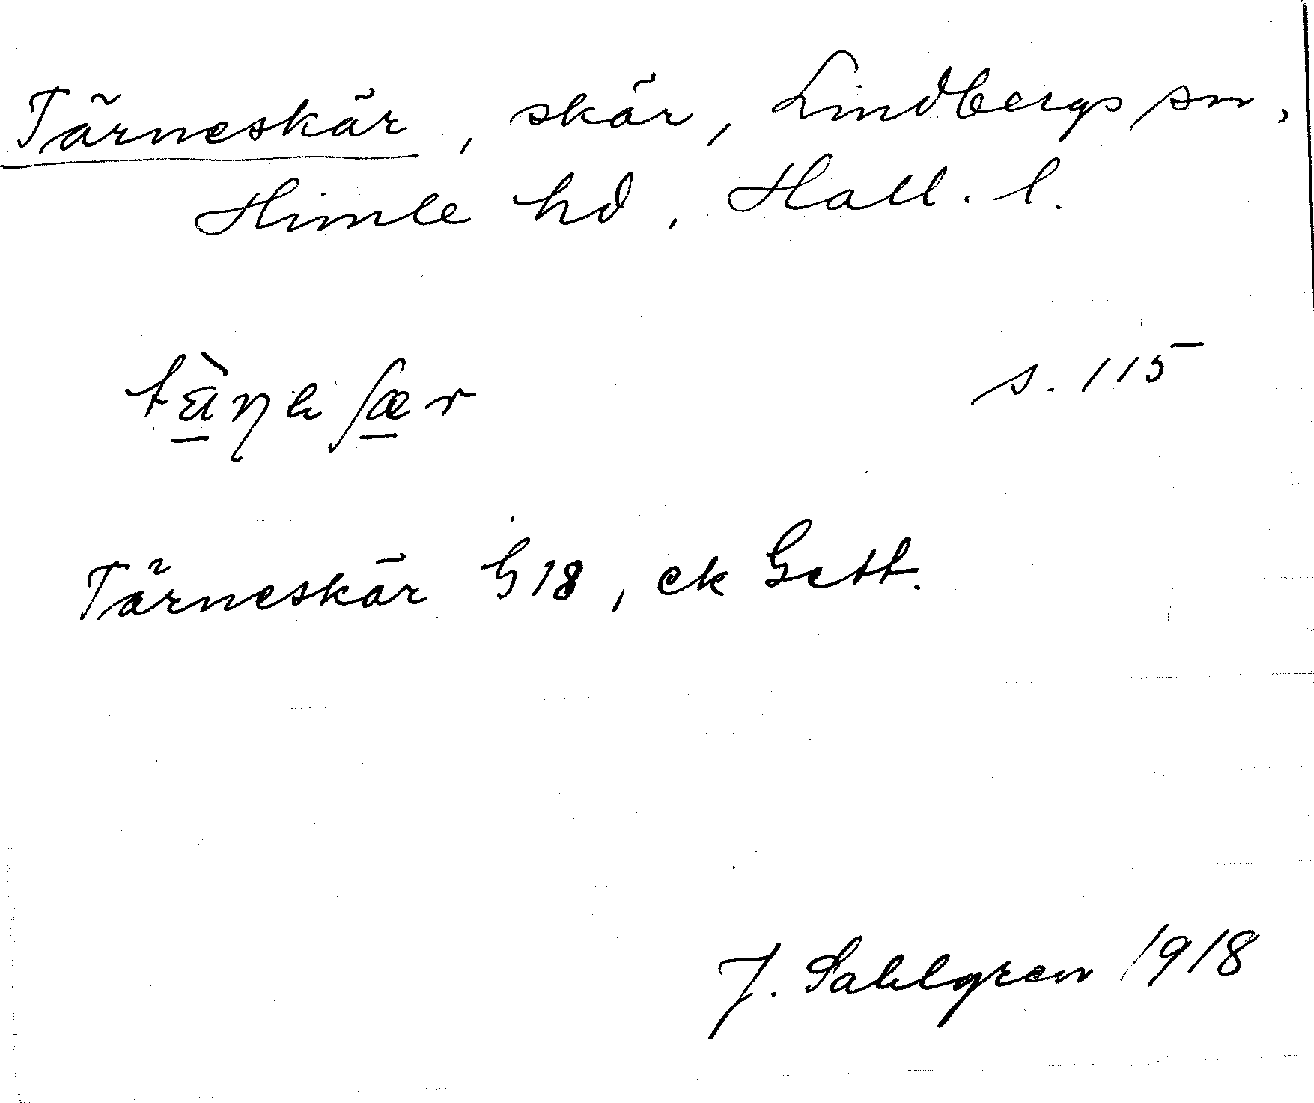 Tärneskär, skär, Lindbergs sn,
Himle hd, Hall. l.
s. 115
Tärneskär G 18, ek Gett.
J. Sahlgren 1918